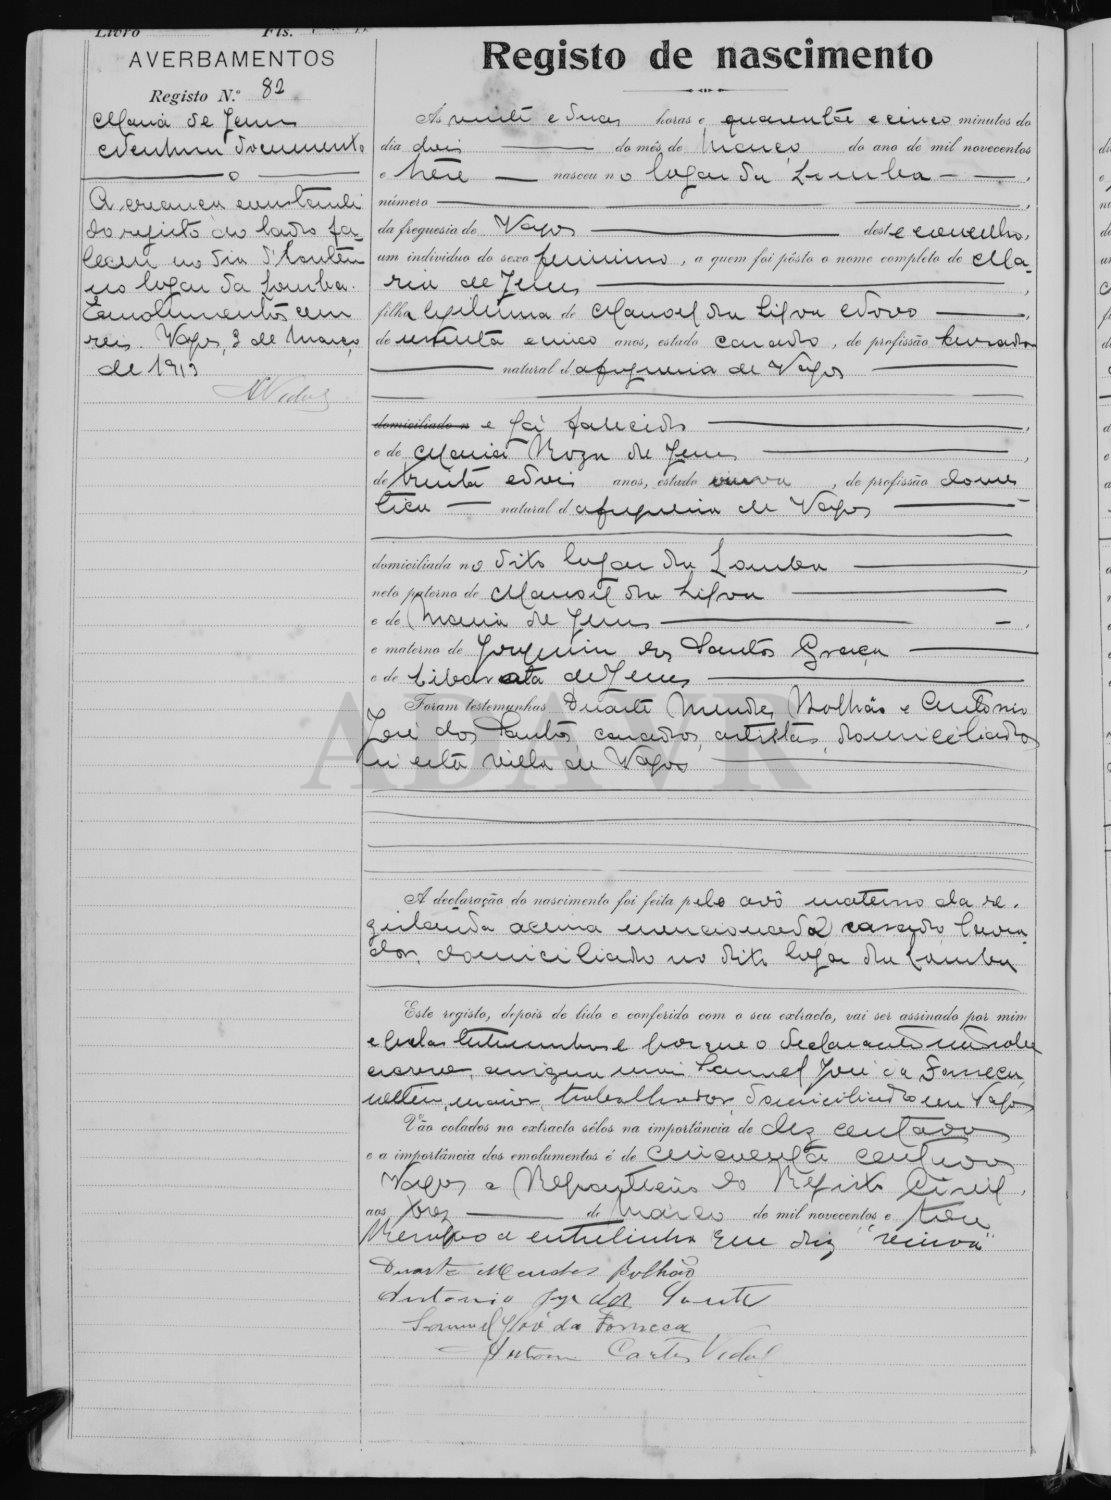 Livro Fls.
AVERBAMENTOS
Registo N.º 82
Maria de Jesus
Nenhum documento
A creança constante
do registo ao lado fa-
leceu no dia d'hontem
no logar da Lomba.
Emolumentos cem
reis. Vagos, 3 de Março
de 1913
AVidal
Registo de nascimento
Ás vinte e duas horas e quarenta e cinco minutos do
dia dois do mês de Março do ano de mil novecentos
e treze nasceu no logar da Lomba
número
da freguesia de Vagos deste concelho,
um individuo do sexo feminino, a quem foi pôsto o nome completo de Ma-
ria de Jesus
filha legitima de Manoel da Silva Novo
de e cinco anos, estado casado, de profissão lavrador
natural da freguesia de Vagos
domiciliado n e já falecido
e de Maria Roza de Jesus
de trinta e dois anos, estado viuva, de profissão domes
tica natural da freguesia de Vagos
domiciliada no dito logar da Lomba
neto paterno de Manoel da Silva
e de Maria de Jesus
e materno de Joaquim dos Santos Graça
e de Liberata de Jesus
Foram testemunhas Duarte Mendes Bolhão e Antonio
José dos Santos casados, artistas, domiciliados
n'esta villa de Vagos
ADAVR
A declaração do nascimento foi feita pelo avô materno da re-
gistanda acima mencionada casado, lavra-
dor, domiciliado no dito logar da Lomba
Este registo, depois de lido e conferido com o seu extracto, vai ser assinado por mim
e pelas testemunhas e porque o declarante não sabe
escrever, assigna Samuel José da Fonseca,
solteiro, maior, trabalhador, domiciliado em Vagos
Vão colados no extracto sêlos na importância de dez centavos
e a importância dos emolumentos é de cincoenta centavos
Vagos e Repartição do Registo Civil,
aos trez de Março de mil novecentos e treze
Resalvo a entrelinha que diz "viuva"
Duarte Mendes Bolhão
Antonio José dos Santos
Samuel José da Fonseca
Antonio Carlos Vidal